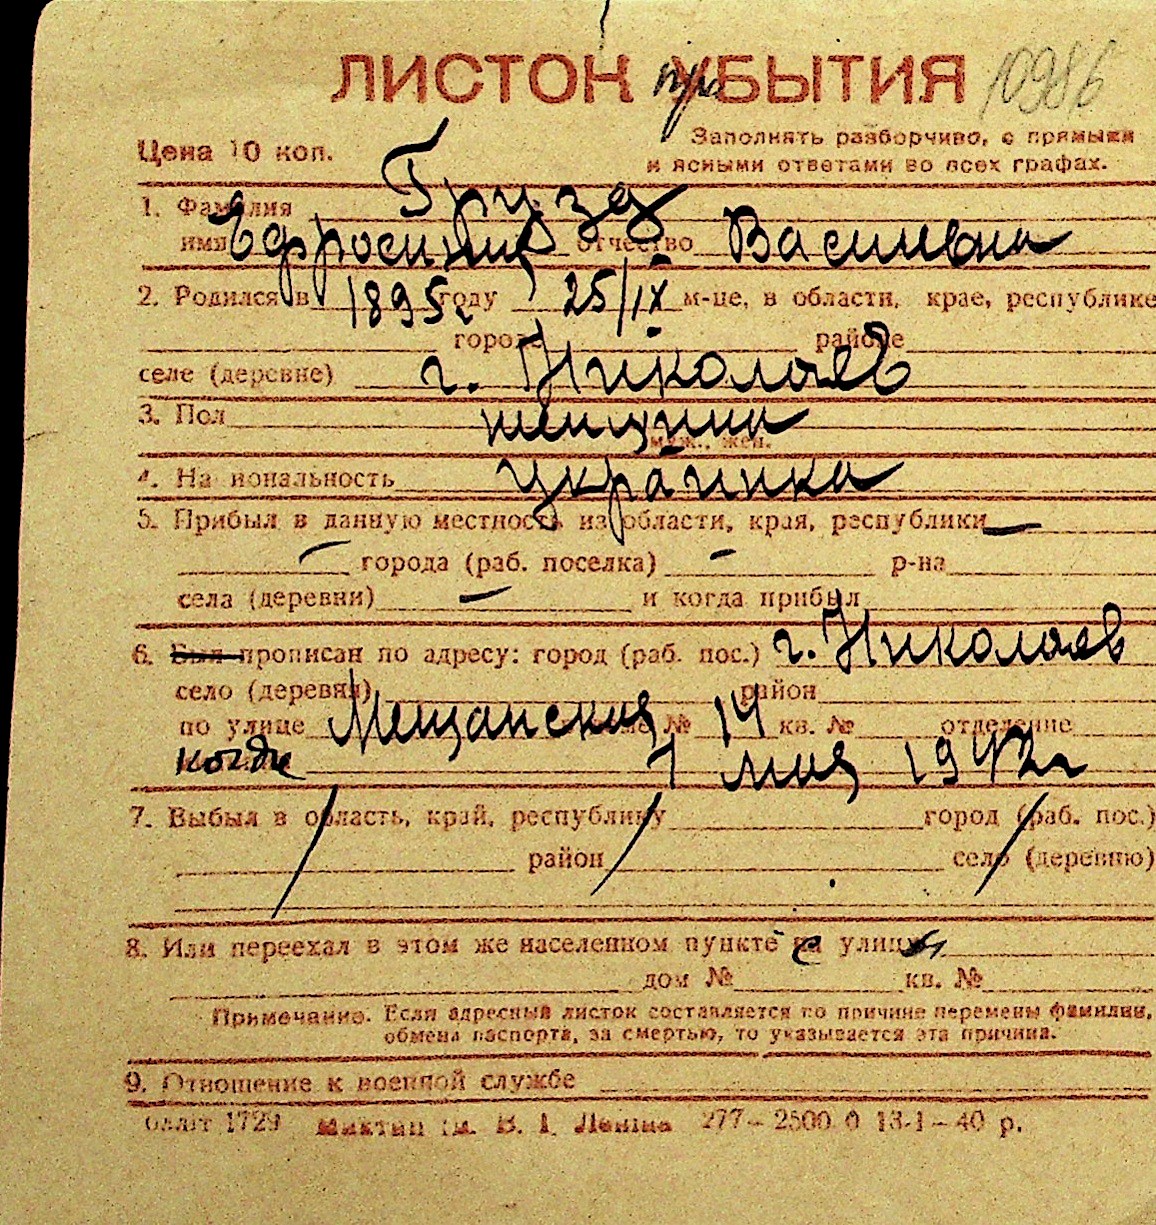 ЛИСТОК прБЫТИЯ 10986
Цена 10 коп. Заполнять разборчиво, с прямыми
и ясными ответами во всех графах.
1. Фамилия Груза
имя Ефросиния отчество Василевна
2. Родился в 1895 году 25/IX м-це, в области, крае, республике
городе районе
селе (деревне) г. Николаев
3. Пол женщина
муж., жен.
4. Национальность украинка
5. Прибыл в данную местность из области, края, республики —
— города (раб. поселка) — р-на
села (деревни) — и когда прибыл
6. Был прописан по адресу: город (раб. пос.) г. Николаев
село (деревня) район
по улице Мещанская № 14 кв. № отделение
когда 1 мая 1942 г
7. Выбыл в область, край, республику город (раб. пос.)
район село (деревню)
8. Или переехал в этом же населенном пункте с улицы
дом № кв. №
Примечание. Если адресный листок составляется по причине перемены фамилии,
обмена паспорта, за смертью, то указывается эта причина.
9. Отношение к военной службе
1729 В. І. Леніна 277—2500 0 13-1—40 р.